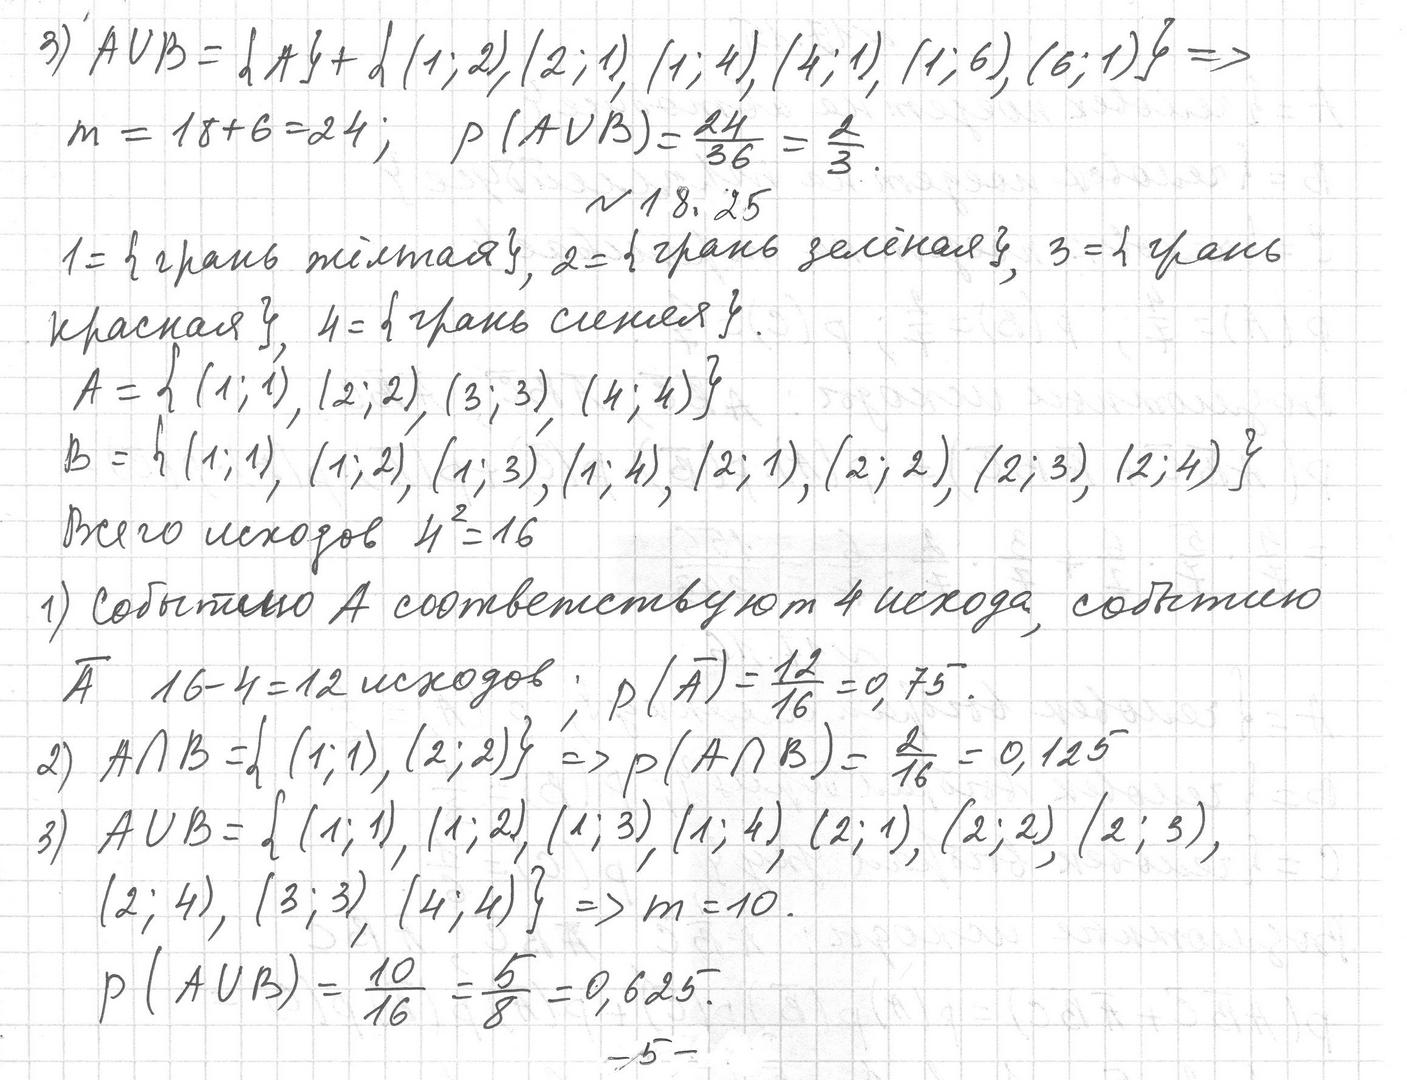 3) A∪B = {A} + {(1;2), (2;1), (1;4), (4;1), (1;6), (6;1)} =>
m = 18+6=24; p(A∪B) = 24/36 = 2/3.
~ 18.25
1= {грань жёлтая}, 2= {грань зелёная}, 3 = {грань
красная}, 4= {грань синяя}.
A = {(1;1), (2;2), (3;3), (4;4)}
B = {(1;1), (1;2), (1;3), (1;4), (2;1), (2;2), (2;3), (2;4)}
Всего исходов 4²=16
1) Событию A соответствуют 4 исхода, событию
A̅ 16-4=12 исходов; p(A̅) = 12/16 = 0,75.
2) A∩B = {(1;1), (2;2)} => p(A∩B) = 2/16 = 0,125
3) A∪B = {(1;1), (1;2), (1;3), (1;4), (2;1), (2;2), (2;3),
(2;4), (3;3), (4;4)} => m = 10.
p(A∪B) = 10/16 = 5/8 = 0,625.
-5-